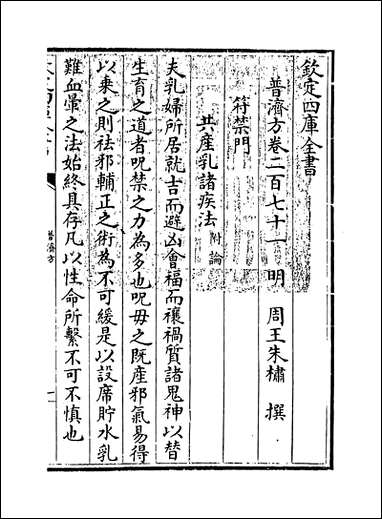 欽定四庫全書
普濟方卷二百七十一 明 周王朱橚 撰
符禁門
共産乳諸疾法 附論
夫乳婦所居就吉而避凶會福而禳禍質諸鬼神以替
生育之道者呪禁之力為多也呪毋之既産邪氣易得
以乗之則祛邪輔正之術為不可緩是以設席貯水乳
難血暈之法始終具存凡以性命所繫不可不慎也
普濟方